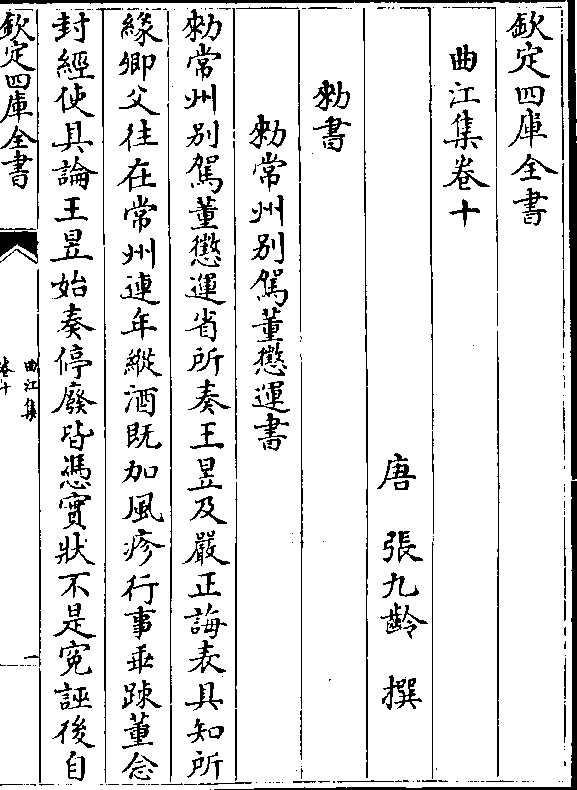 欽定四庫全書
曲江集卷十
唐 張九齡 撰
勅書
勅常州別駕董懲運書
勅常州別駕董懲運省所奏王昱及嚴正誨表具知所
緣卿父往在常州連年縱酒既加風疹行事乖踈董念
封經使具論王昱始奏停廢皆憑實狀不是寃誣後自
欽定四庫全書
曲江集
卷十
一